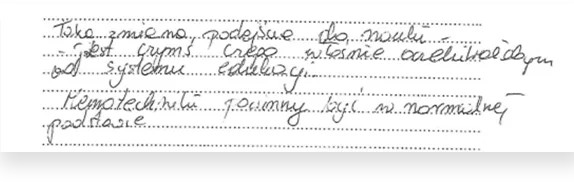 Taka zmiana podejścia do nauki -
- jest czymś czego właśnie oczekiwałabym
od systemu edukacji.
Mnemotechniki powinny być w normalnej
podstawie